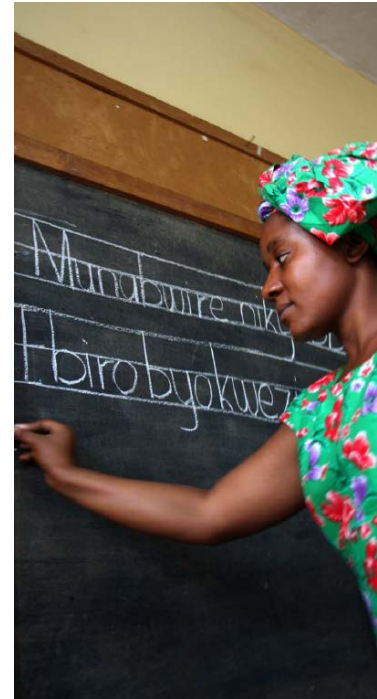 Munabwire
Ebiro byokwezi